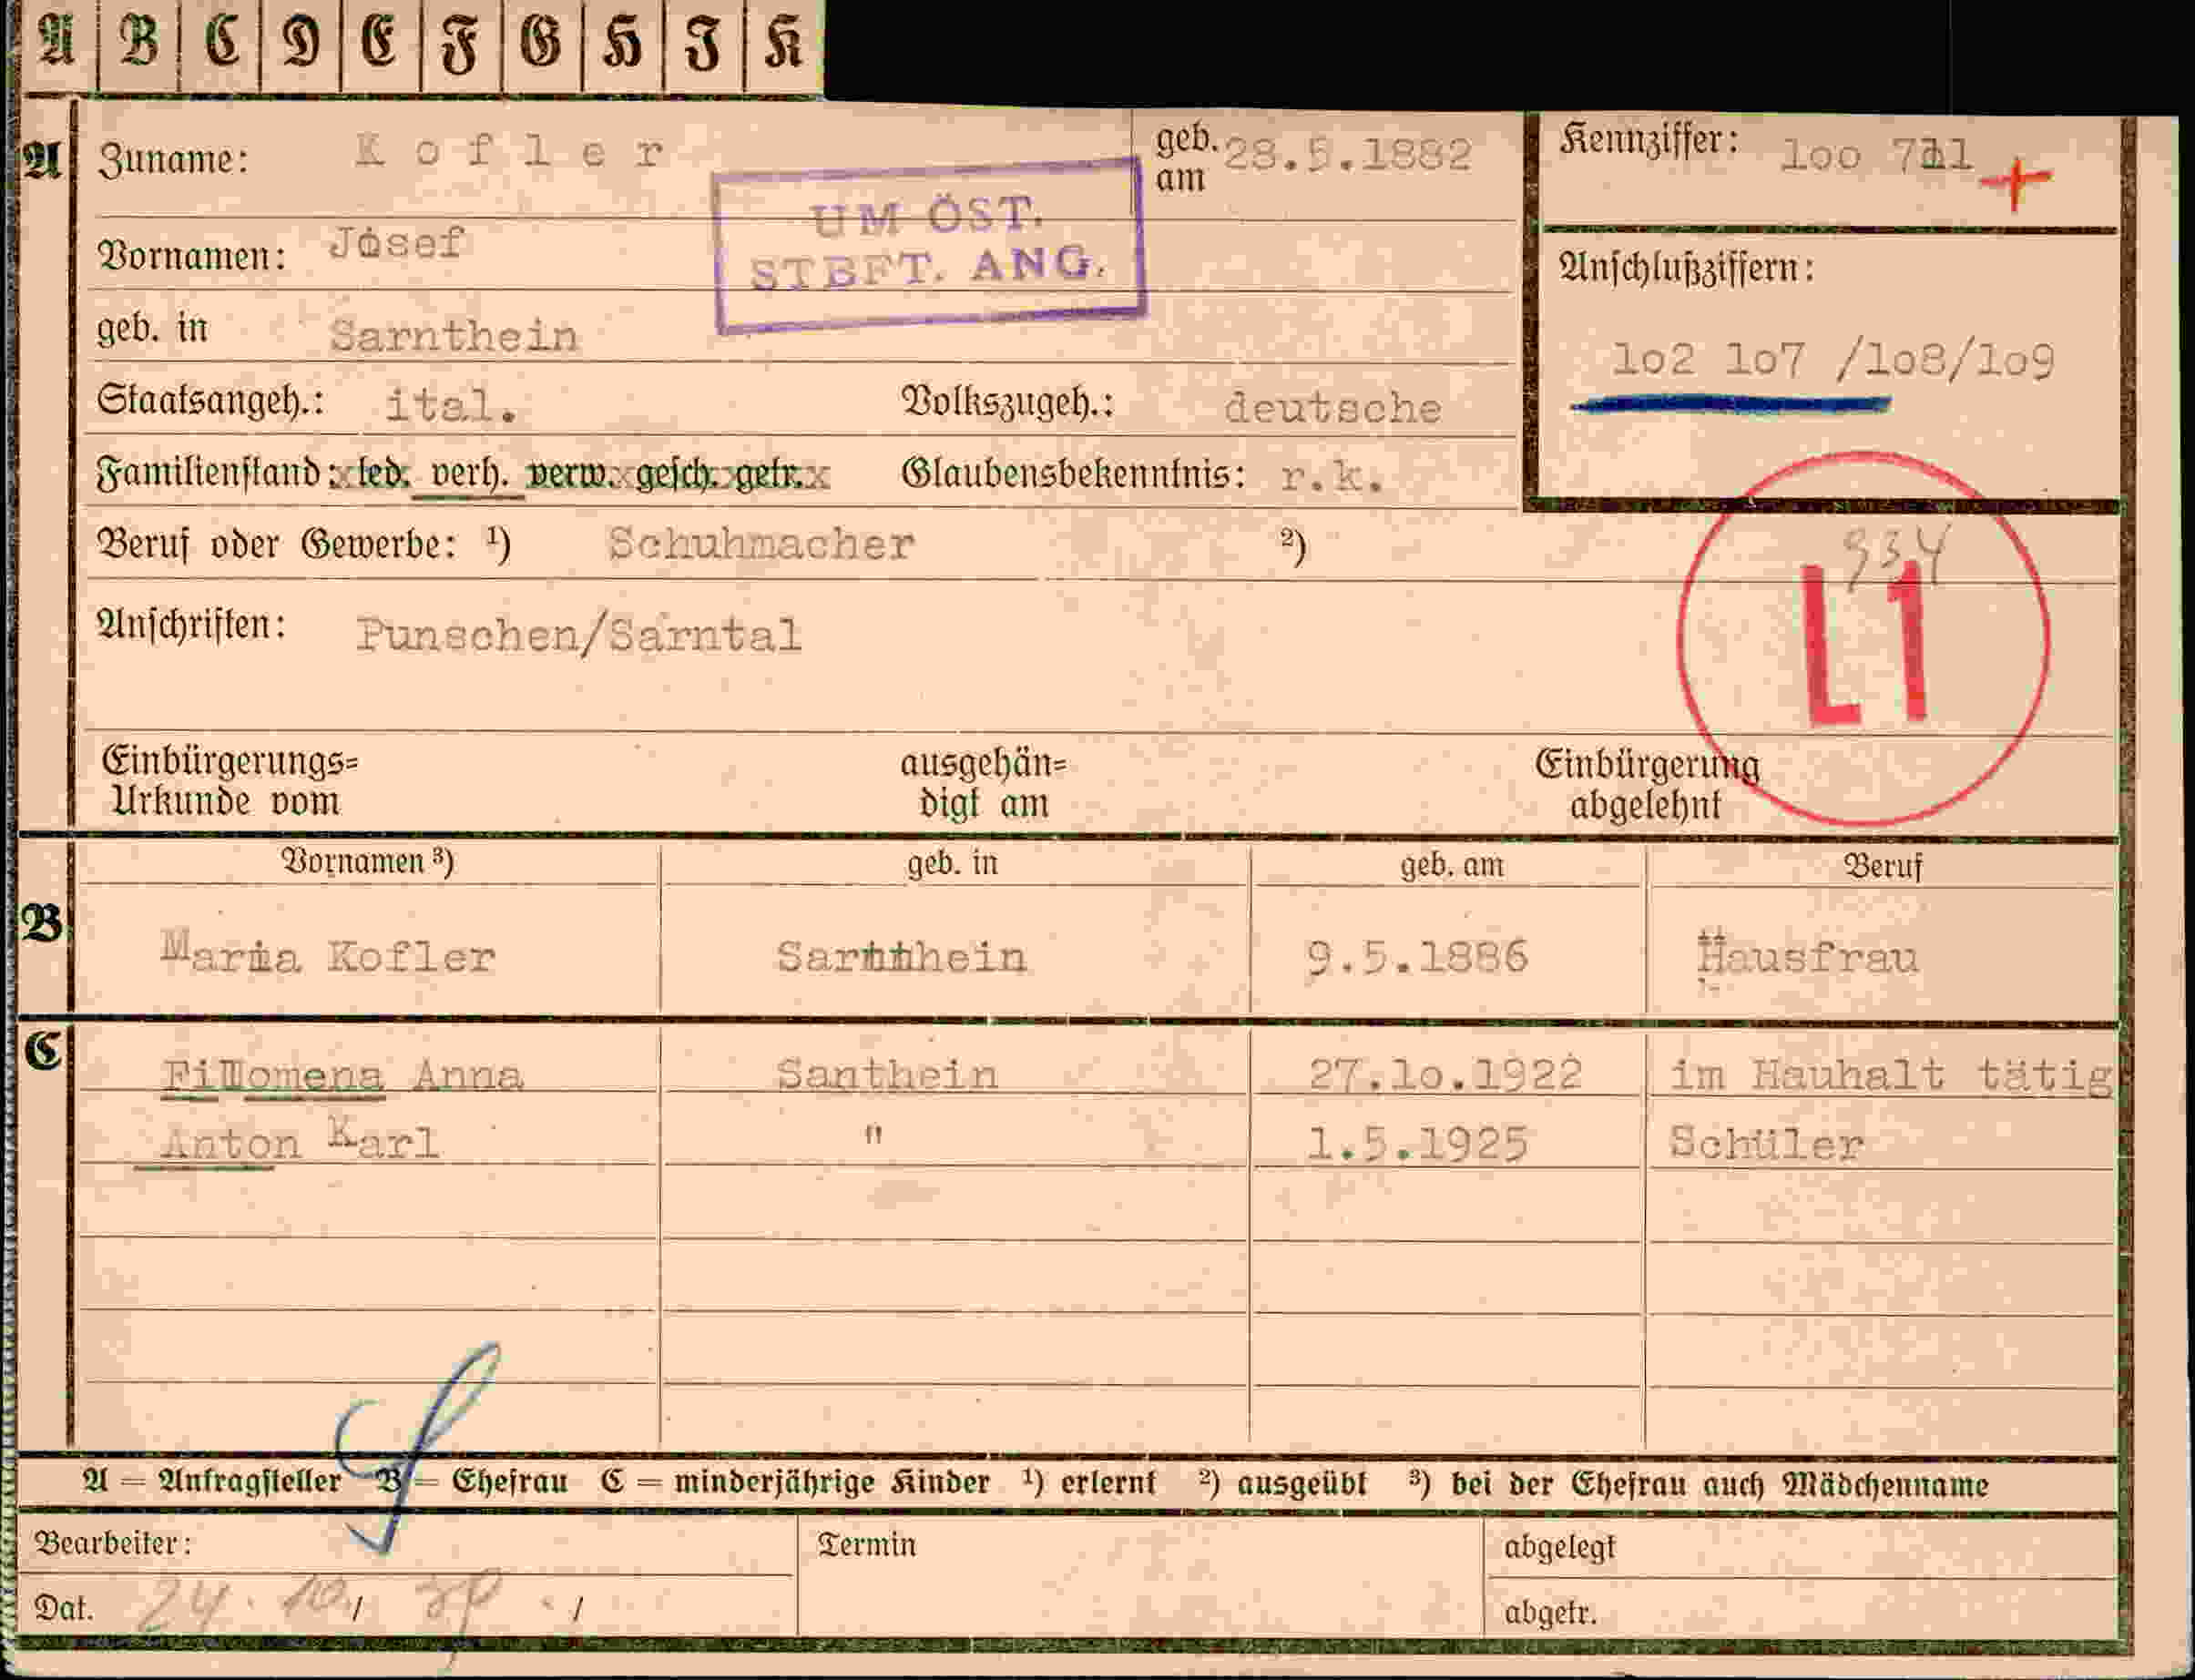 A B C D E F G H I K
A Zuname: Kofler geb. am 28.5.1882 Kennziffer: loo 711 +
UM ÖST.
STBFT. ANG.
Vornamen: Josef Anschlußziffern:
geb. in Sarnthein lo2 lo7 /lo8/lo9
Staatsangeh.: ital. Volkszugeh.: deutsche
Familienstand: led. verh. verw. gesch. getr. Glaubensbekenntnis: r.k.
Beruf oder Gewerbe: ¹) Schuhmacher ²) 934
Anschriften: Punschen/Sarntal L1
Einbürgerungs= ausgehän= Einbürgerung
Urkunde vom digt am abgelehnt
Vornamen ³) geb. in geb. am Beruf
B Maria Kofler Sarnthein 9.5.1886 Hausfrau
C Fillomena Anna Santhein 27.lo.1922 im Hauhalt tätig
Anton Karl " 1.5.1925 Schüler
A = Antragsteller B = Ehefrau C = minderjährige Kinder ¹) erlernt ²) ausgeübt ³) bei der Ehefrau auch Mädchenname
Bearbeiter: Termin abgelegt
Dat. 24. 10./ 39 . / abgetr.